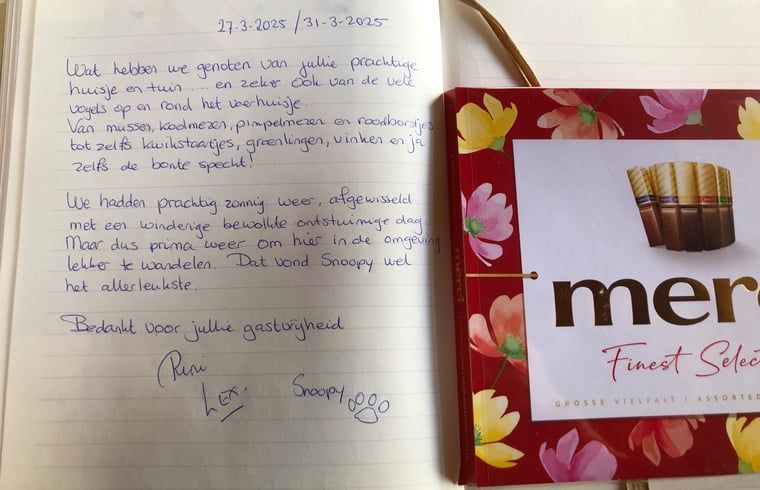 27-3-2025 / 31-3-2025
Wat hebben we genoten van jullie prachtige
huisje en tuin .... en zeker ook van de vele
vogels op en rond het voerhuisje.
Van mussen, koolmezen, pimpelmezen en roodborstjes
tot zelfs kwikstaartjes, groenlingen, vinken en ja
zelfs de bonte specht!
We hadden prachtig zonnig weer, afgewisseld
met een winderige bewolkte onstuimige dag.
Maar dus prima weer om hier in de omgeving
lekker te wandelen. Dat vond Snoopy wel
het allerleukste.
Bedankt voor jullie gastvrijheid
Rini
Lex.
Snoopy
merci
mer
Finest Selec
GROSSE VIELFALT / ASSORTED